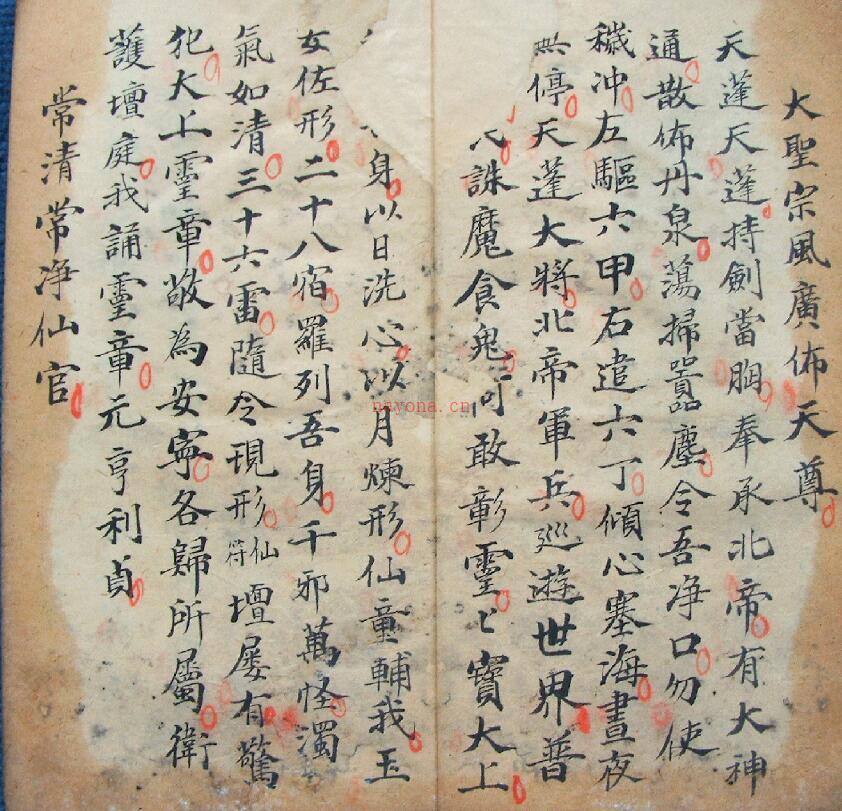 大聖宗風廣佈天尊
天蓬天蓬持劍當胸奉承北帝有大神
通散佈丹泉蕩掃囂塵令吾净口勿使
穢冲左驅六甲右遣六丁傾心塞海晝夜
停天蓬大將北帝軍兵巡遊世界普
誅魔食鬼何敢彰靈〻寶大上
身以日洗心以月煉形仙童輔我玉
女佐形二十八宿羅列吾身千邪萬怪濁
氣如清三十六雷隨令現形仙符壇屡有驚
犯大上靈章敬為安寧各歸所屬衛
護壇庭我誦靈章元亨利貞
常清常净仙官
nayona.cn